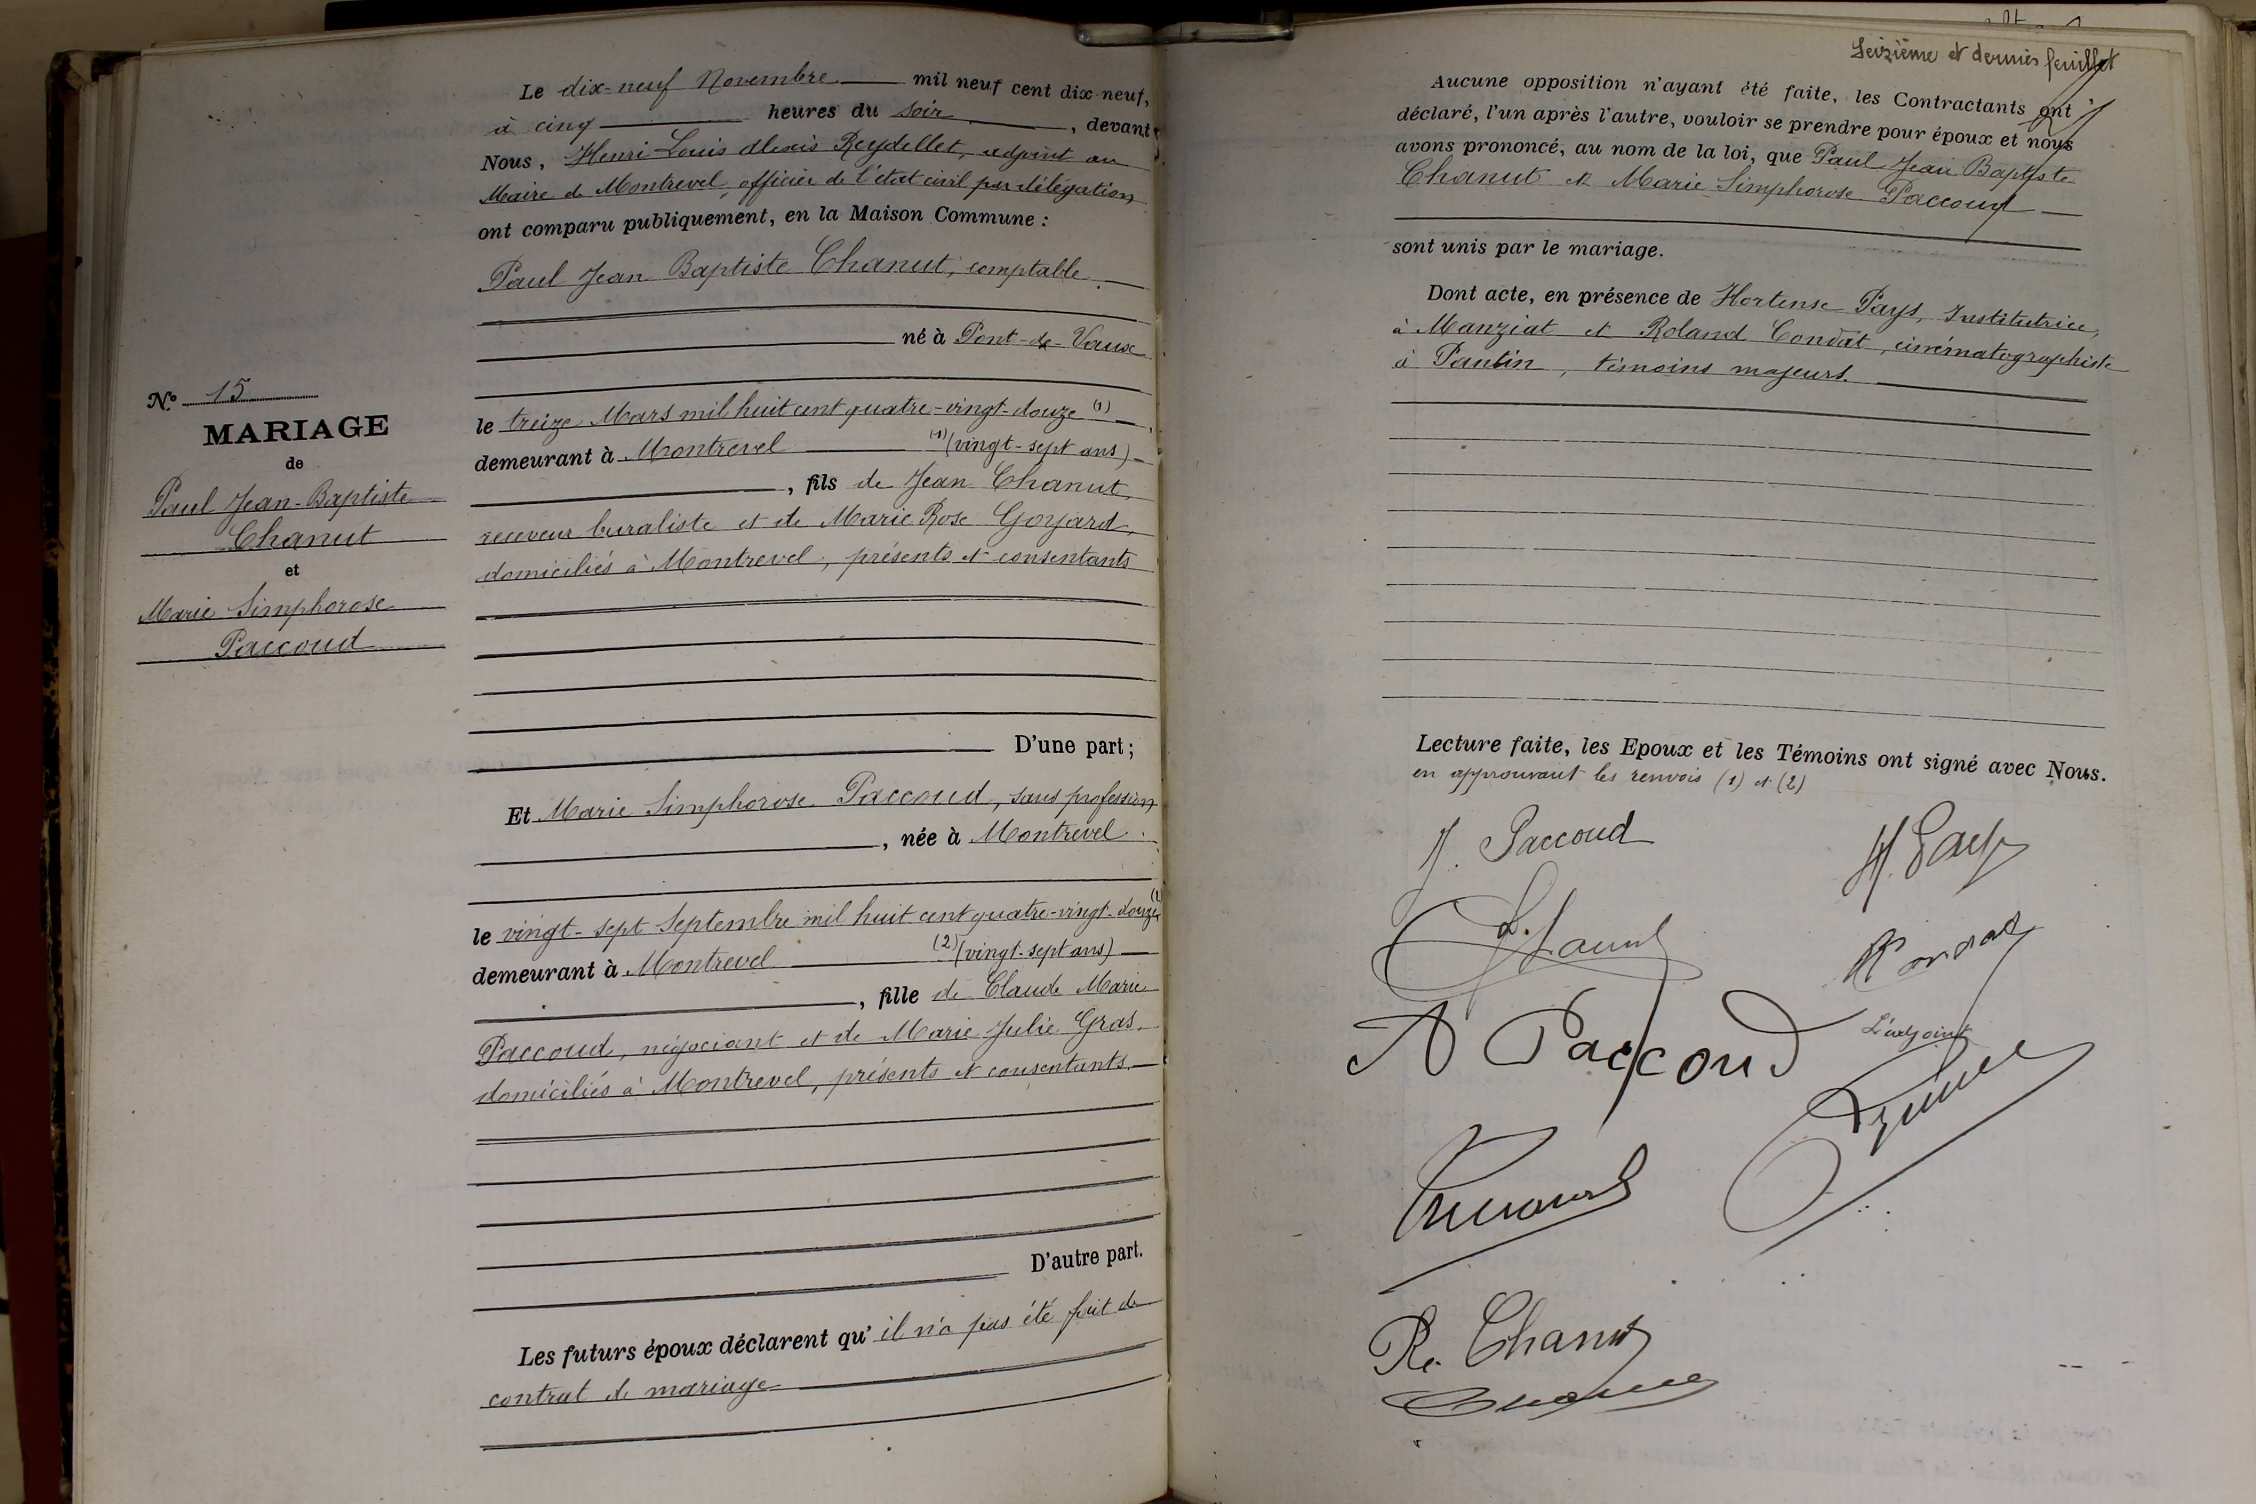 Le dix-neuf Novembre mil neuf cent dix-neuf,
à cinq heures du soir, devant
Nous, Henri Louis Alexis Reydellet, adjoint au
Maire de Montrevel, officier de l'état civil par délégation
ont comparu publiquement, en la Maison Commune :
Paul Jean Baptiste Chanut, comptable
né à Pont-de-Vaux
le treize Mars mil huit cent quatre-vingt-douze (1)
demeurant à Montrevel (1) (vingt-sept ans)
, fils de Jean Chanut,
receveur buraliste et de Marie Rose Goyard,
domiciliés à Montrevel, présents et consentants
D'une part ;
Et Marie Simphorose Paccoud, sans profession
, née à Montrevel
le vingt-sept Septembre mil huit cent quatre-vingt-douze (2)
demeurant à Montrevel (2) (vingt-sept ans)
, fille de Claude Marie
Paccoud, négociant et de Marie Julie Gras
domiciliés à Montrevel, présents et consentants
D'autre part.
Les futurs époux déclarent qu'il n'a pas été fait de
contrat de mariage
N° 15
MARIAGE
de
Paul Jean-Baptiste
Chanut
et
Marie Simphorose
Paccoud
Seizième et dernier feuillet
Aucune opposition n'ayant été faite, les Contractants ont
déclaré, l'un après l'autre, vouloir se prendre pour époux et nous
avons prononcé, au nom de la loi, que Paul Jean Baptiste
Chanut et Marie Simphorose Paccoud
sont unis par le mariage.
Dont acte, en présence de Hortense Pays, Institutrice,
à Manziat et Roland Condat, cinématographiste
à Pantin, témoins majeurs.
Lecture faite, les Epoux et les Témoins ont signé avec Nous.
en approuvant les renvois (1) et (2)
J. Paccoud
H. Pays
Chanut
R Condat
A Paccoud
L'adjoint
R. Chanut